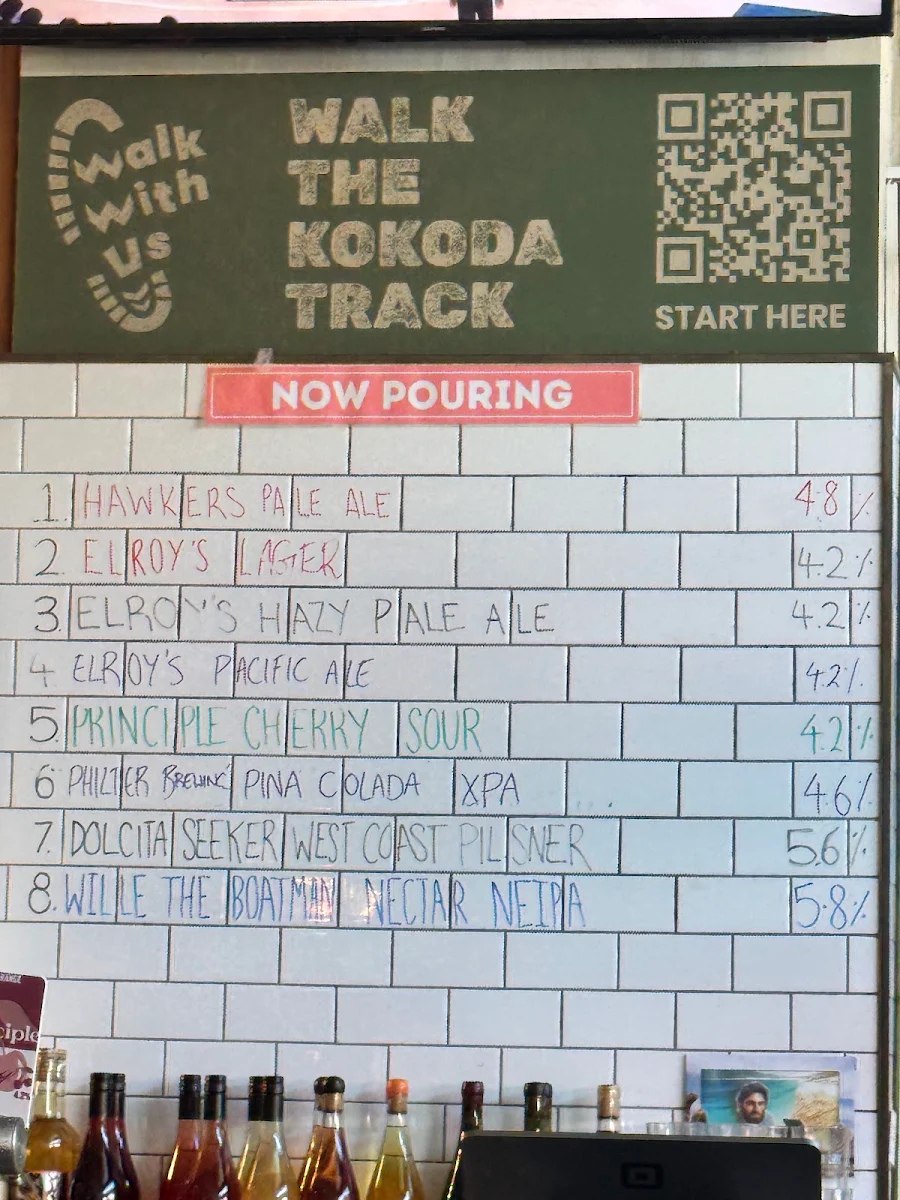 Walk
With
Us
WALK
THE
KOKODA
TRACK
START HERE
NOW POURING
1. HAWKERS PALE ALE 4.8%
2. ELROY'S LAGER 4.2%
3. ELROY'S HAZY PALE ALE 4.2%
4 ELROY'S PACIFIC ALE 4.2%
5. PRINCIPLE CHERRY SOUR 4.2%
6 PHILTER BREWING PINA COLADA XPA 4.6%
7. DOLCITA SEEKER WEST COAST PILSNER 5.6%
8. WILLE THE BOATMAN NECTAR NEIPA 5.8%
ciple